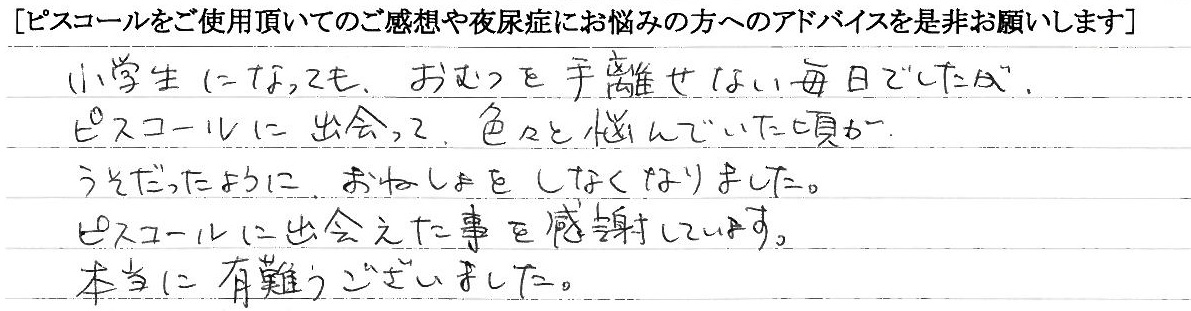 [ピスコールをご使用頂いてのご感想や夜尿症にお悩みの方へのアドバイスを是非お願いします]
小学生になっても、おむつを手離せない毎日でしたが、
ピスコールに出会って、色々と悩んでいた頃が、
うそだったように、おねしょをしなくなりました。
ピスコールに出会えた事を感謝しています。
本当に有難うございました。